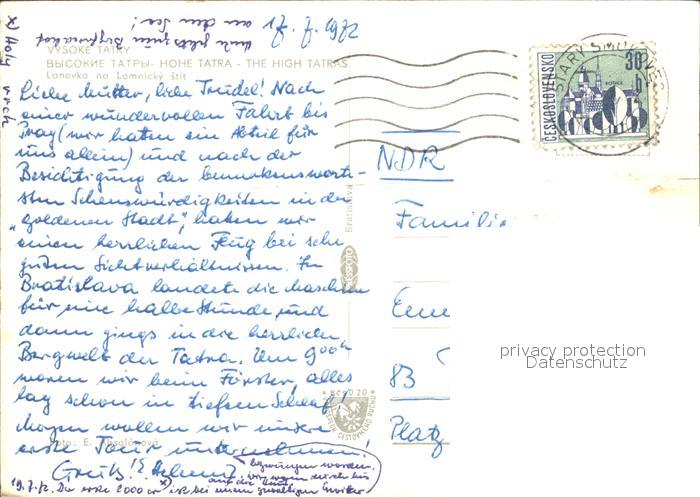 17.7.1972
x) Holý vrch
VYSOKÉ TATRY
ВЫСОКИЕ ТАТРЫ - HOHE TATRA - THE HIGH TATRAS
Lanovka na Lomnický štít
Liebe Mutter, liebe Trudel! Nach
einer wundervollen Fahrt bis
Prag (wir hatten ein Abteil für
uns allein) und nach der
Besichtigung der bemerkenswerte-
sten Sehenswürdigkeiten in der
"goldenen Stadt", hatten wir
einen herrlichen Flug bei sehr
guten Sichtverhältnissen. In
Bratislava landete die Maschine
für eine halbe Stunde, und
dann gings in die herrliche
Bergwelt der Tatra. Um 9 00 h
waren wir beim Förster, alles
lag schon in tiefem Schlaf!
Morgen wollen wir unsere
erste Tour unternehmen!
Foto: E. Absolónová
Gruß!
bezwungen worden.
19.7.72. Der erste 2000 er x) ist bei einem
Bratislava
KČS 0.20
CESTOVNÉHO RUCHU
STARÝ SMOKOVEC
ČESKOSLOVENSKO
30 h
NDR
Familie
83
Platz
privacy protection
Datenschutz